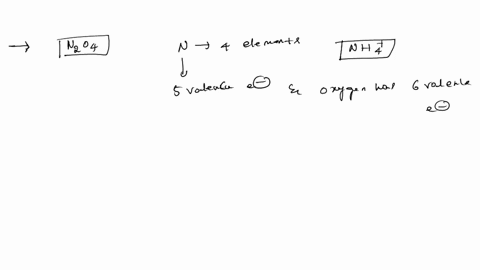 → N₂O₄ N → 4 elements NH₄⁺
↓
5 valence e⊖ & oxygen has 6 valence
e⊖